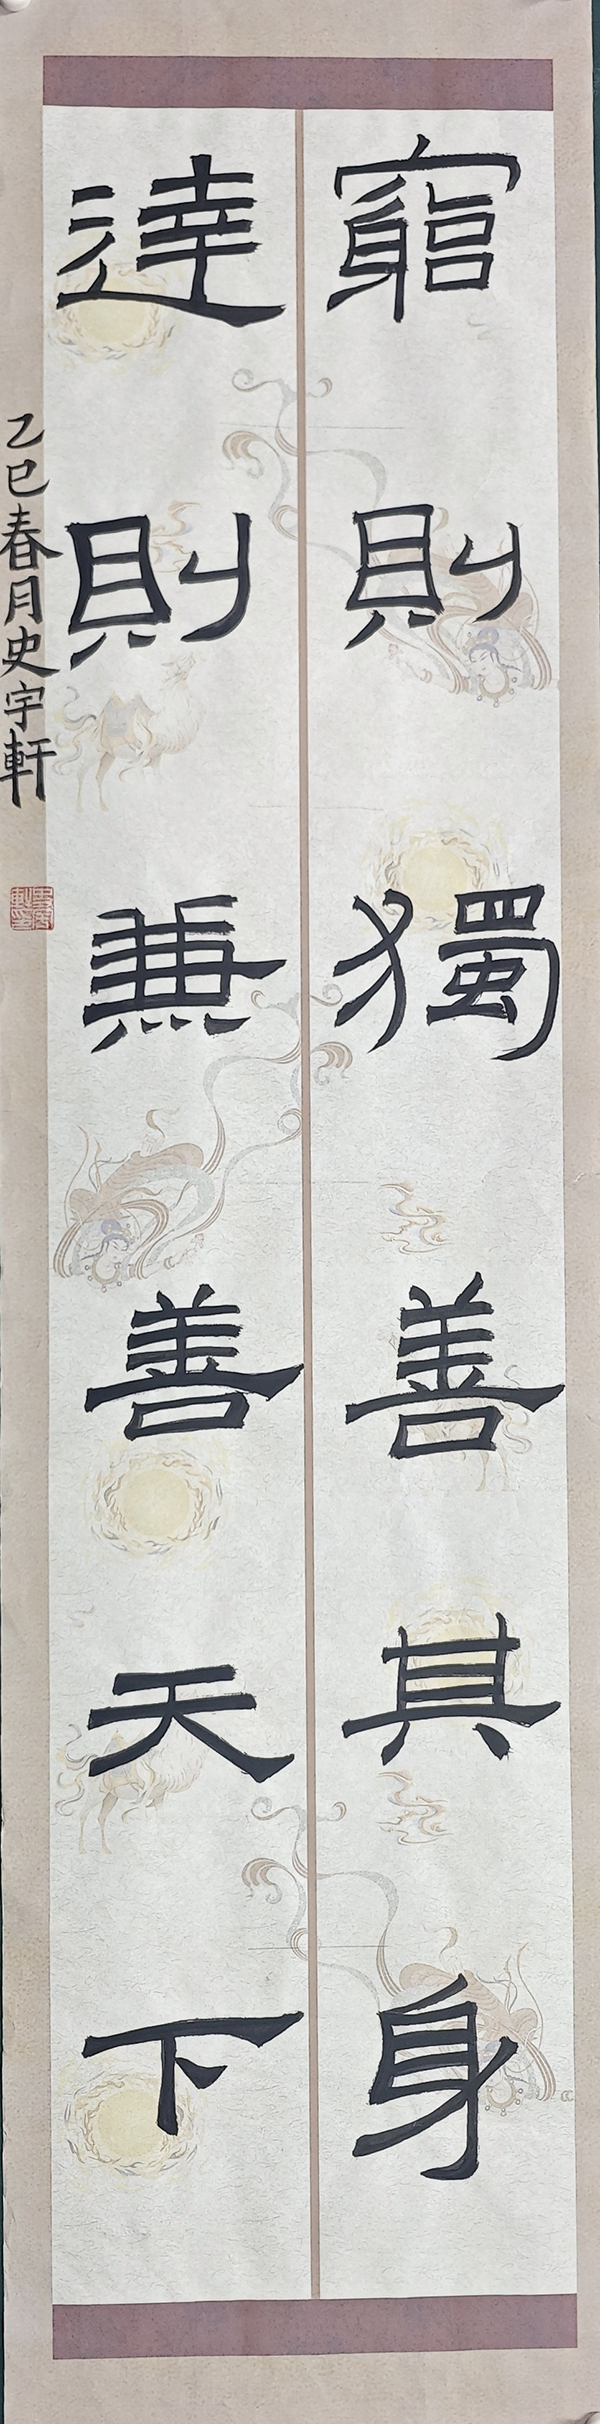 窮則獨善其身
達則兼善天下
乙巳春月史宇軒